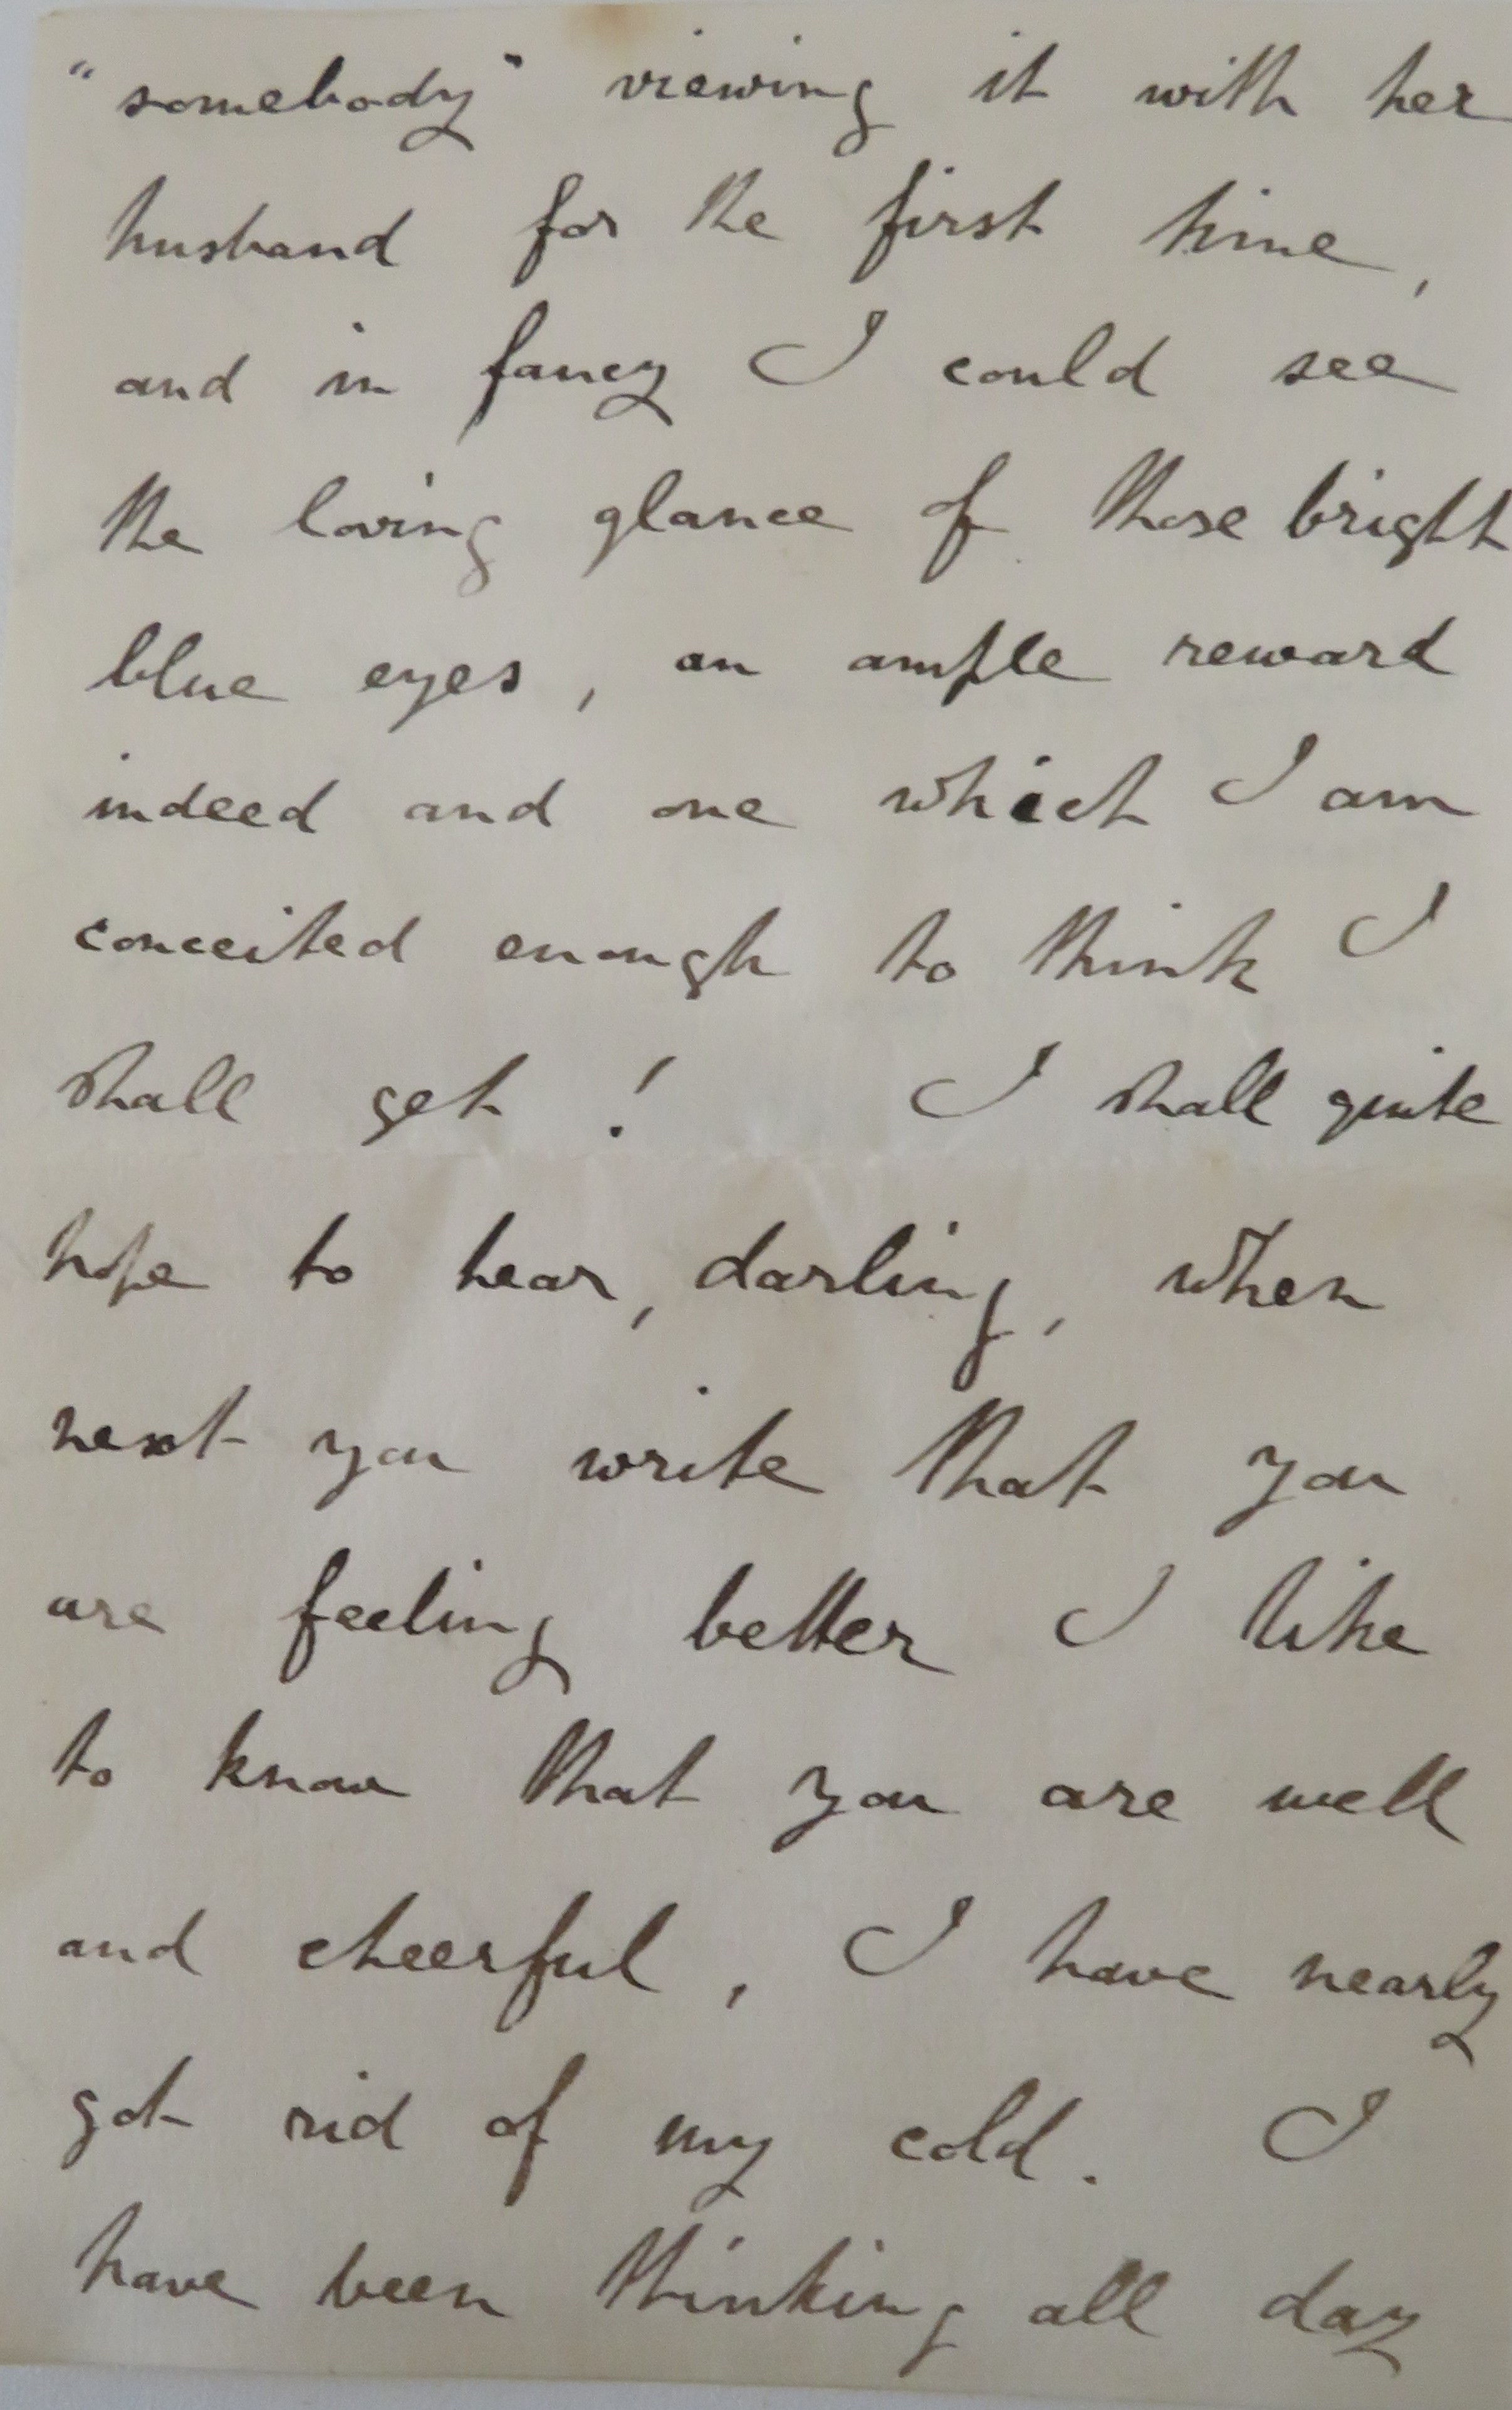 "somebody" viewing it with her
husband for the first time,
and in fancy I could see
the loving glance of those bright
blue eyes, an ample reward
indeed and one which I am
conceited enough to think I
shall get! I shall quite
hope to hear, darling, when
next you write that you
are feeling better I like
to know that you are well
and cheerful, I have nearly
got rid of my cold. I
have been thinking all day